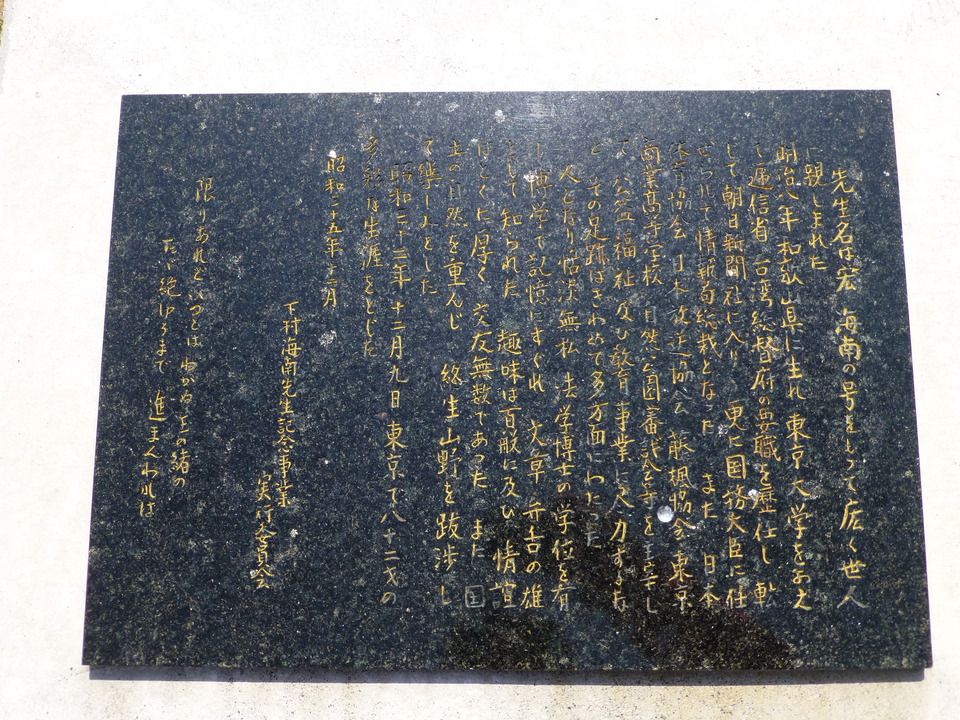 先生名は宏 海南の号をもつて広く世人
に親しまれた
明治八年和歌山県に生れ 東京大学をおえ
逓信省 台湾総督府の要職を歴任し 転
して朝日新聞社に入り 更に国務大臣に任
ぜられて情報局総裁となつた また 日本
体育協会 日本放送協会 東京
商業高等学校 日然公園審議会等を
公益福祉及び教育事業に尽力するな
ど その足跡はきわめて多方面にわたつた
人となり恬淡無私 法学博士の学位を有
し 博学で記憶にすぐれ 文章 弁舌の雄
として知られた 趣味は百般に及び 情誼
はとくに厚く 交友無数であつた また 国
土の自然を重んじ 終生山野を跋渉し
て楽しみとした
昭和三十二年十二月九日東京で八十二才の
多彩な生涯をとじた
昭和三十五年三月
下村海南先生記念事業
実行委員会
限りあれど いつとは わかぬ 玉の緒の
たゞ絶ゆるまで 進まんわれは